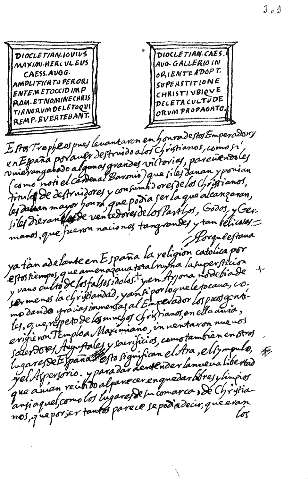 3.9
DIOCLETIAN. IOVIUS
MAXIMI. HERCULEUS
CAESS. AVGG.
AMPLIFICATO PER ORI
ENTEM ET OCCID. IMP
ROM. ET NOMINE CHRIS
TIANORUM DELETO QUI
REMP. EVERTEBANT.
DIOCLETIAN. CAES.
AVG. GALLERIO IN
ORIENTE ADOPT.
SUPERSTITIONE
CHRISTI UBIQUE
DELETA CULTU DE
ORUM PROPAGATO.
Estos Tropheos pues levantaron en honra destos Emperadores
en España por aver destruido a los Christianos, como si
huvieran ganado algunas grandes victorias, pareciendoles
(como notó el Cardenal Baronio) que si les davan y ponian
titulos de destruidores y consumidores de los Christianos,
les davan mayor honra que podia ser la que alcançaran,
si les dieran de vencedores de los Parthos, Godos, y Ger-
manos, que fueron naciones tan grandes y tan
Porque estava
ya tan adelante en España la religion catholica por
estos tiempos, que amenaçava total ruina la supersticion
y vano culto de los falsos idolos:
menos la Christiandad, y ansi por lo que le tocava, co-
mo dando gracias inmensas al Emperador los
les, que respeto de los muchos Christianos en ella avia,
erigieron Templo a Maximiano, inventaron nuevos
sacerdotes Augustales, y sacrificios, como tambien en otros
lugares de España esto significan el Ara, el
y el Aspersorio. y para dar a entender la nueva libertad
que avian recibido al parecer quedar libres y limpios
ansi aquel, como los lugares de su comarca, de Christia-
nos, que por ser tantos parece se podia decir, que eran
los